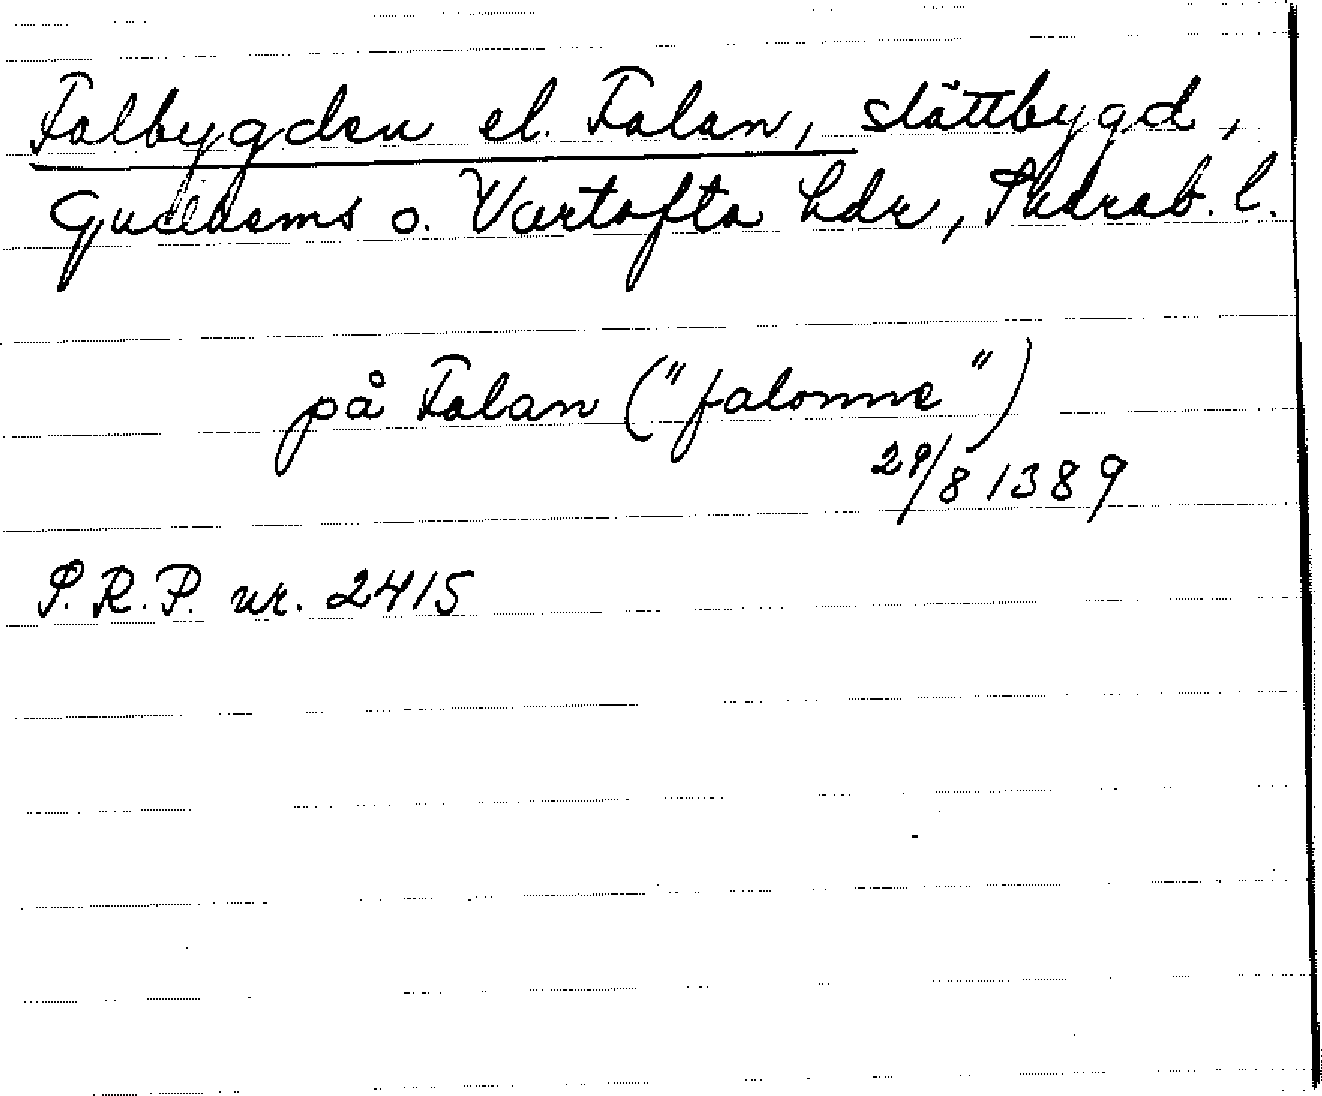 Falbygden el. Falan, slättbygd,
Gudhems o. Vartofta hdr, Skarab. l.
på Falan ("falonne")
29/8 1389
S.R.P. nr. 2415